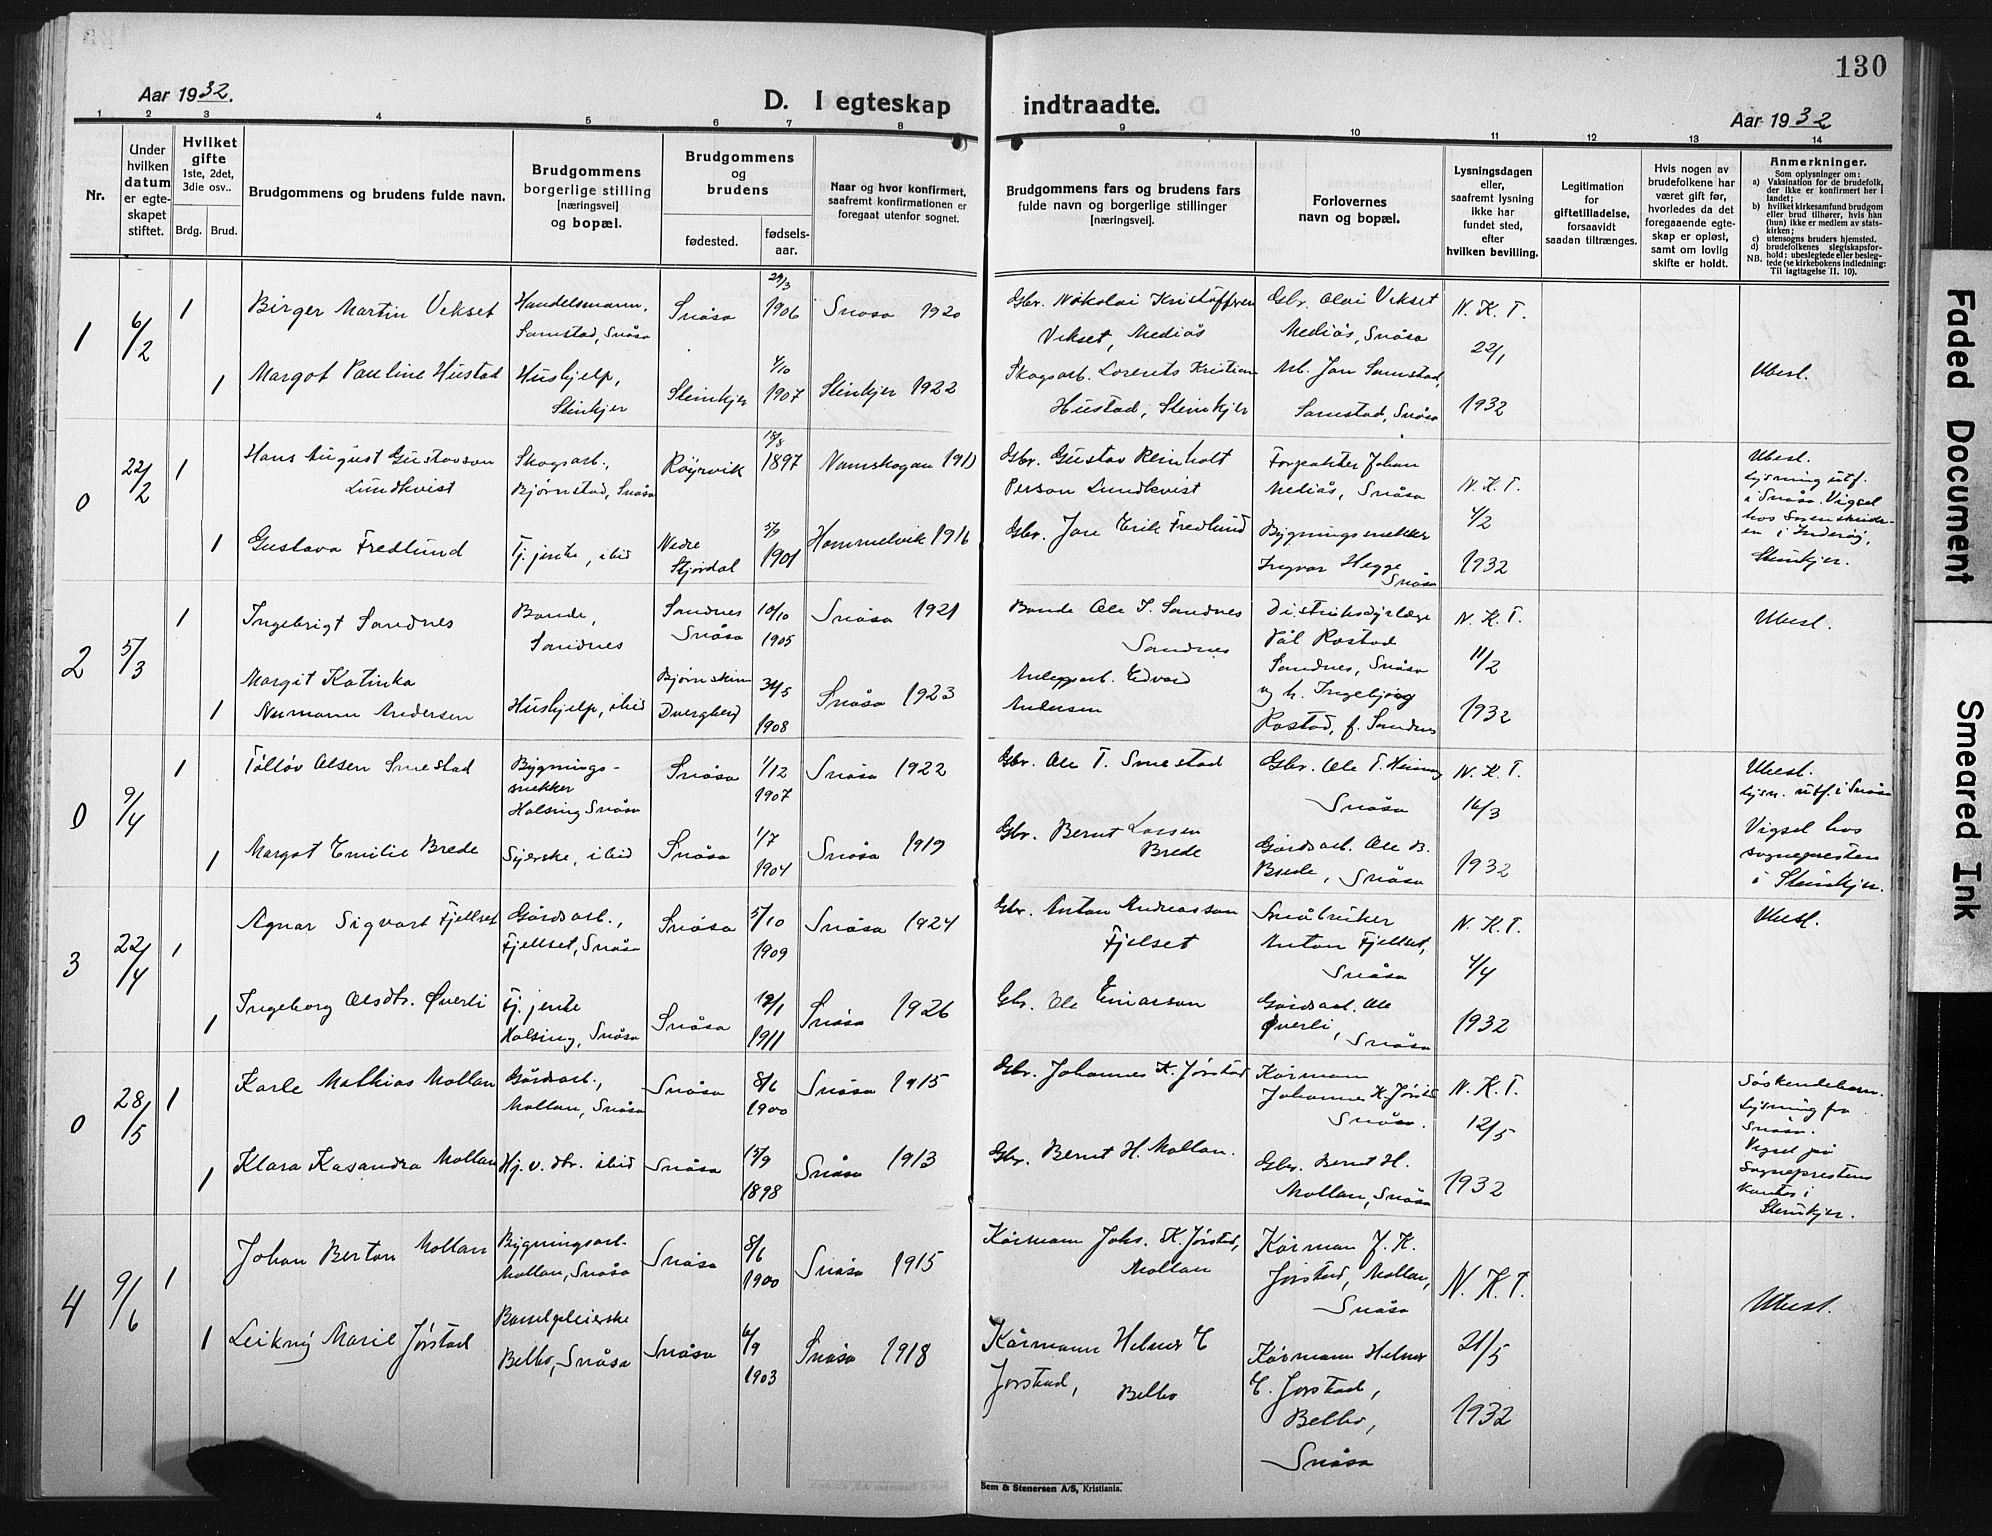 130
Aar 1932.
D. I egteskap indtraadte.
Aar 1932
1 2 3 4 5 6 7 8 9 10 11 12 13 14
Nr.
Under hvilken datum er egte-skapet stiftet.
Hvilket gifte 1ste, 2det, 3die osv..
Brdg. Brud.
Brudgommens og brudens fulde navn.
Brudgommens borgerlige stilling [næringsvei] og bopæl.
Brudgommens og brudens
fødested. fødsels-aar.
Naar og hvor konfirmert, saafremt konfirmationen er foregaat utenfor sognet.
Brudgommens fars og brudens fars fulde navn og borgerlige stillinger [næringsvei].
Forlovernes navn og bopæl.
Lysningsdagen eller, saafremt lysning ikke har fundet sted, efter hvilken bevilling.
Legitimation for giftetilladelse, forsaavidt saadan tiltrænges.
Hvis nogen av brudefolkene har været gift før, hvorledes da det foregaaende egte-skap er opløst, samt om lovlig skifte er holdt.
Anmerkninger.
Som oplysninger om:
a) Vaksination for de brudefolk, der ikke er konfirmert her i landet;
b) hvilket kirkesamfund brudgom eller brud tilhører, hvis han (hun) ikke er medlem av stats-kirken;
c) utensogns bruders hjemsted.
d) brudefolkenes slegtskapsfor-hold: ubeslegtede eller besleg-tede (se kirkebokens indledning:
NB. Til iagttagelse II. 10).
1 6/2 1 Birger Martin Vekset Handelsmann, Samstad, Snåsa Snåsa 29/3 1906 Snåsa 1920 Gbr. Nikolai Kristoffersen Vekset, Mediås Gbr. Olai Vekset Mediås, Snåsa N. K. T. 22/1 1932
1 Margot Pauline Hustad Hushjelp, Steinkjer Steinkjer 4/10 1907 Steinkjer 1922 Skogsarb. Lorents Kristian Hustad, Steinkjer Arb. Jon Samstad, Samstad, Snåsa Ubesl.
0 22/2 1 Hans August Gustavson Lundkvist Skogsarb., Bjørnstad, Snåsa Röyrvik 18/8 1897 Namskogan 191 Gbr. Gustav Reinholt Person Lundkvist Forpakter Johan Mediås, Snåsa N. K. T. 4/2 1932 Ubesl. Lysning utf. i Snåsa. Vigsel hos Sorenskriveren i Inderøy, Steinkjer.
1 Gustava Fredlund Tj. jente, ibid Nedre Stjørdal 5/9 1901 Hommelvik 1916 Gbr. Jon Erik Fredlund Bygningssnekker Ingvar Hegge Snåsa
2 5/3 1 Ingebrigt Sandnes Bonde, Sandnes Sandnes Snåsa 10/10 1905 Snåsa 1921 Bonde Ole I. Sandnes Sandnes Distriktsdyrlæge Pål Rostad Sandnes, Snåsa og h. Ingebjørg Rostad, f. Sandnes N. K. T. 11/2 1932 Ubesl.
1 Margit Katinka Numann Andersen Hushjelp, ibid Bjørnskinn Dverberg 1908 Snåsa 1923 Anleggsarb. Edvard Andersen
0 9/4 1 Tölløv Olsen Smestad Bygnings-snekker Holsing Snåsa Snåsa 1/12 1907 Snåsa 1922 Gbr. Ole T. Smestad Gbr. Ole T. Snåsa N. K. T. 16/3 1932 Ubesl. Lysn. utf. i Snåsa Vigsel hos sognepresten i Steinkjer.
1 Margot Emilie Brede Syerske, ibid Snåsa 1/7 1904 Snåsa 1919 Gbr. Bernt Larsen Brede Gårdsarb. Ole B. Brede, Snåsa
3 22/4 1 Agnar Sigvart Fjellset Gårdsarb., Fjellset, Snåsa Snåsa 5/10 1909 Snåsa 1924 Gbr. Anton Andreasson Fjelset Småbruker Anton Fjellset, Snåsa N. K. T. 4/4 1932 Ubesl.
1 Ingeborg Olsdtr. Øverli Tj. jente Holsing, Snåsa Snåsa 12/1 1911 Snåsa 1926 Gbr. Ole Einarson Gårdsarb. Ole Øverli, Snåsa
0 28/5 1 Karle Mathias Mollan Gårdsarb., Mollan, Snåsa Snåsa 8/6 1900 Snåsa 1915 Gbr. Johannes K. Jørstad Kårmann Johannes K. Jørstad Snåsa. N. K. T. 12/5 1932 Søskendebarn. Lysning fra Snåsa. Vigsel på Sogneprestens kontor i Steinkjer.
1 Klara Kasandra Mollan Hj. v. dtr. ibid Snåsa 15/9 1898 Snåsa 1913 Gbr. Bernt H. Mollan. Gbr. Bernt H. Mollan, Snåsa
4 9/6 1 Johan Berton Mollan Bygningsarb. Mollan, Snåsa Snåsa 8/6 1900 Snåsa 1915 Kårmann Johs. K. Jørstad, Mollan Kårmann J. K. Jørstad, Mollan, Snåsa N. K. T. 21/5 1932 Ubesl.
1 Leikny Marie Jørstad Barselpleierske Belbo, Snåsa Snåsa 6/9 1903 Snåsa 1918 Kårmann Helmer E Jørstad, Belbo Kårmann Helmer E. Jørstad, Belbo, Snåsa
Sem & Stenersen A/S, Kristiania.
Faded Document
Smeared Ink